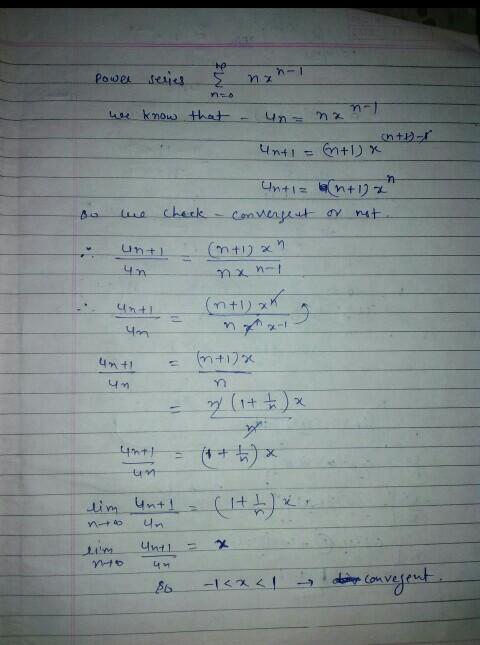 power series ∞ Σ n=0 n x^n-1
we know that - un = n x^n-1
un+1 = (n+1) x^(n+1)-1
un+1 = (n+1) x^n
so we check - convergent or not.
∴ un+1/un = (n+1) x^n / n x^n-1
∴ un+1/un = (n+1) x^n / n x^n x^-1
un+1/un = (n+1) x / n
= n (1 + 1/n) x / n
un+1/un = (1 + 1/n) x
lim n→∞ un+1/un = (1 + 1/n) x.
lim n→∞ un+1/un = x
so -1 < x < 1 → convegent.